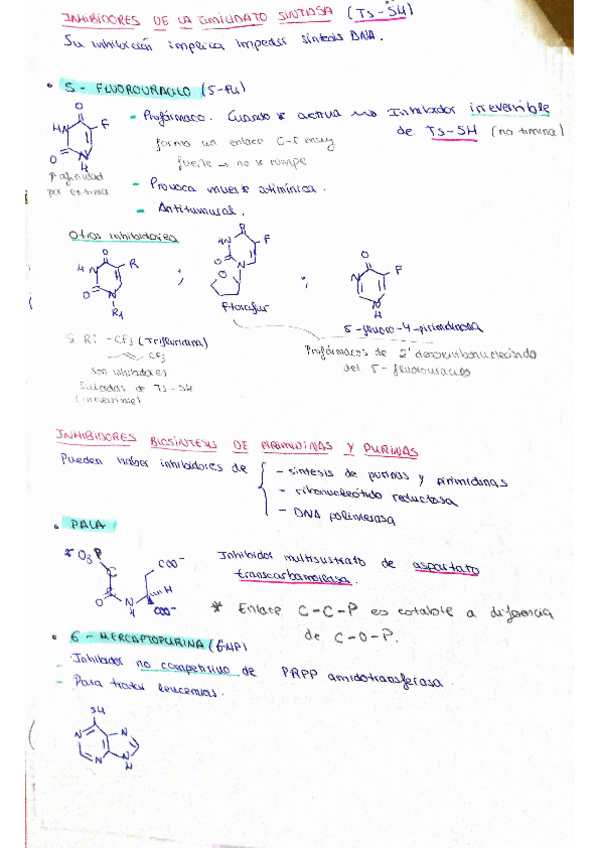 INHIBIDORES DE LA TIMIDILATO SINTASA (TS-SH)
Su inhibición implica impedir síntesis DNA.
• 5-FLUOROURACILO (5-FU)
- Profármaco. Cuando se activa → Inhibidor irreversible
de TS-SH (no timina)
forma un enlace C-F muy
fuerte → no se rompe
↑ afinidad
por enzima
- Provoca muerte atimínica.
- Antitumoral.
Otros inhibidores
Ftorafur
5-fluoro-4-pirimidinosa
Si R: -CF3 (Trifluridina)
CF3
Son inhibidores
suicidas de TS-SH
(irreversible)
Profármacos de 2' desoxirribonucleósido
del 5-fluorouracilo
INHIBIDORES BIOSÍNTESIS DE PIRIMIDINAS Y PURINAS
Pueden haber inhibidores de
- síntesis de purinas y pirimidinas
- ribonucleótido reductasa
- DNA polimerasa
• PALA
Inhibidor multisustrato de aspartato
transcarbamoilasa.
* Enlace C-C-P es estable a diferencia
de C-O-P.
• 6-MERCAPTOPURINA (6MP)
- Inhibidor no competitivo de PRPP amidotransferasa.
- Para tratar leucemias.
SH